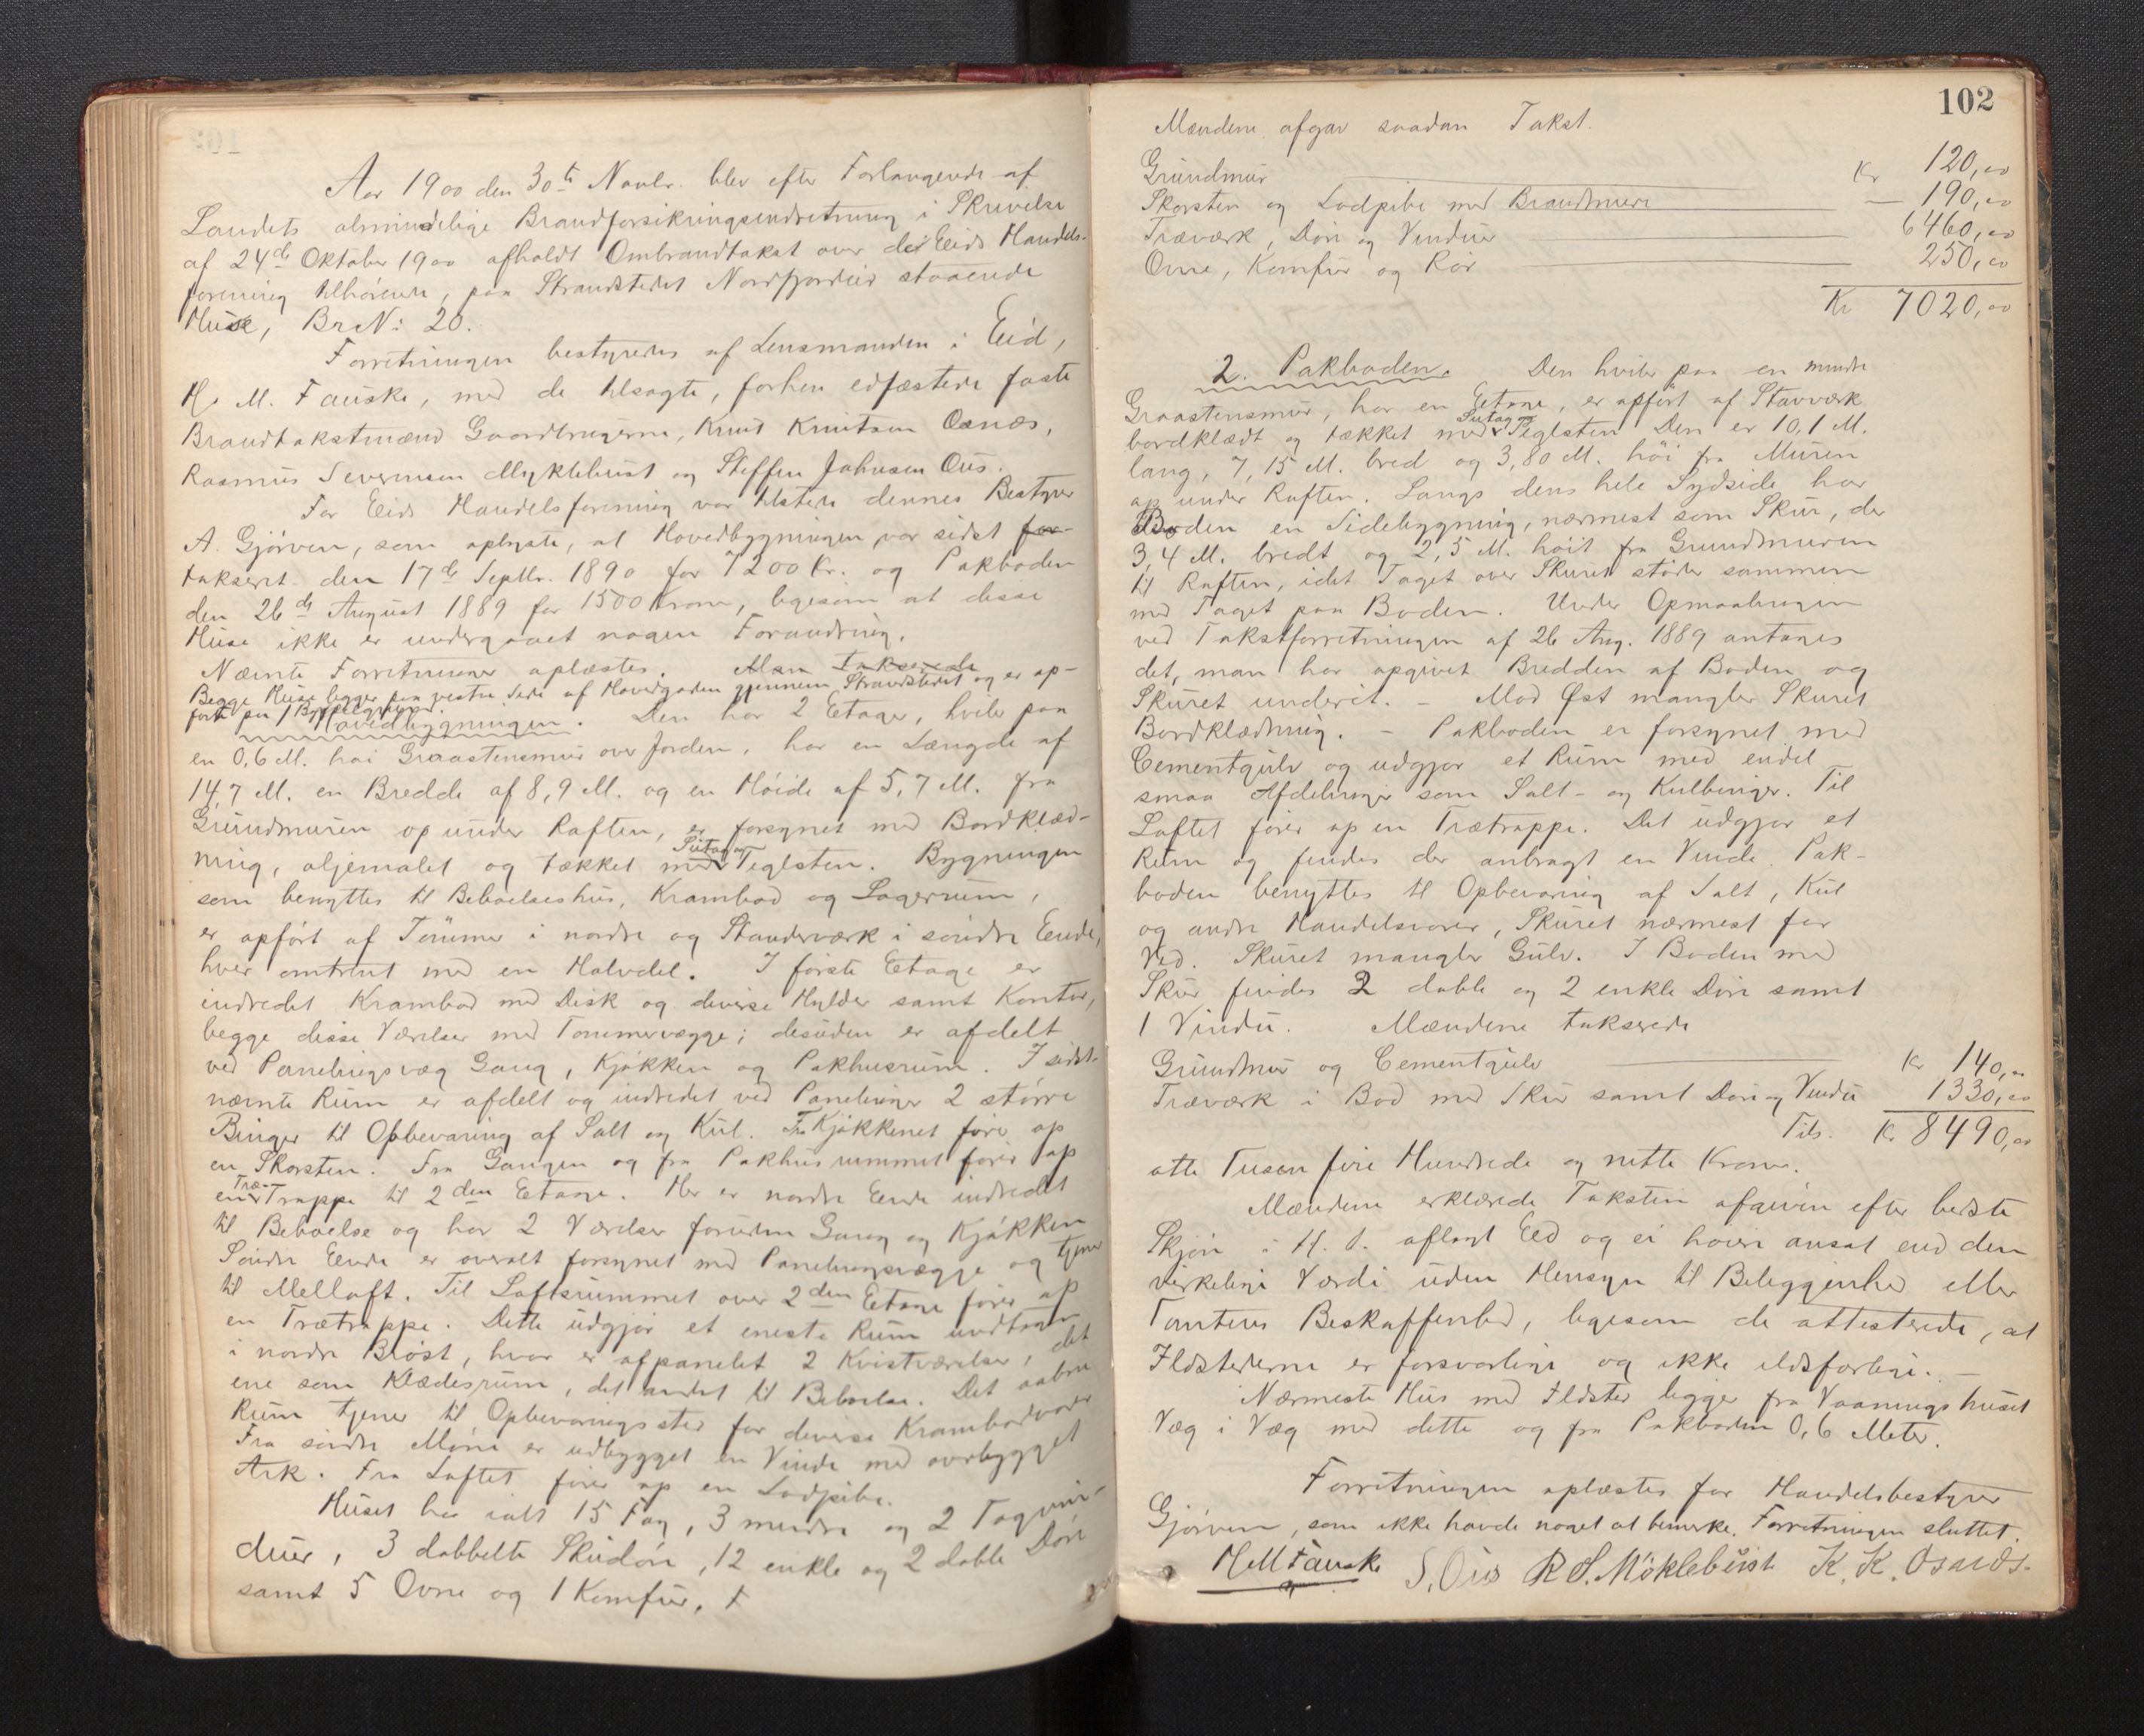 Aar 1900 den 30te Novbr. blev efter Forlangende af
Landets almindelige Brandforsikringsindretning i Skrivelse
af 24de Oktober 1900 afholdt Ombrandtakst over de Eids Handels-
forening tilhørende, paa Strandstedet Nordfjordeid staaende
Huse, BrN: 20.
Forretningen bestyredes af Lensmanden i Eid,
H. M. Fauske, med de tilsagte, forhen edfæstede faste
Brandtakstmænd Gaardbrugerne, Knut Knutsen Osnæs,
Rasmus Severinsen Myklebust og Steffen Johnsen Ous.
For Eids Handelsforening var tilstede dennes Bestyrer
A. Gjörven, som oplyste, at Hovedbygningen var sidst for-
takseret den 17de Septbr. 1890 for 7200 Kr. og Pakboden
den 26de August 1889 for 1500 Kroner, ligesom at disse
Huse ikke er undergaaet nogen Forandring.
Nævnte Forretninger oplæstes. Man takserede
Begge Huse ligger paa vestre Side af Hovedgaden gjennem Strandstedet og er op-
ført paa Bygselgrund.
1 Hovedbygningen. Den har 2 Etager, hviler paa
en 0,6 M. höi Graastensmur over Jorden, har en Længde af
14,7 M. en Bredde af 8,9 M. og en Höide af 5,7 M. fra
Grundmuren op under Raften, er forsynet med Bordklæd-
ning, oljemalet og tækket med Sutag og Teglsten. Bygningen
som benyttes til Beboelseshus, Krambod og Lagerrum,
er opfört af Tömmer i nordre og Standerværk i söndre Eende,
hver omtrent med en Halvdel. I förste Etage er
indredet Krambod med Disk og diverse Hylder samt Kontor,
begge disse Værelser med Tømmervægge; desuden er afdelt
ved Panelingsvæg Gang, Kjökken og Pakhusrum. I sidst-
nævnte Rum er afdelt og indredet ved Panelinger 2 större
Binger til Opbevaring af Salt og Kul. Fra Kjökkenet förer op
en Skorsten. Fra Gangen og fra Pakhusrummet förer op
en Træ-Trappe til 2den Etage. Her er nordre Eende indredet
til Beboelse og har 2 Værelser foruden Gang og Kjökken
Söndre Eende er overalt forsynet med Panelingsvægge og tjener
til Melloft. Til Loftsrummet over 2den Etage förer op
en Trætrappe. Dette udgjör et eneste Rum undtagen
i nordre Bröst, hvor er afpanelet 2 Kvistværelser, det
ene som Klædesrum, det andet til Beboelse. Det aabne
Rum tjener til Opbevaringssted for diverse Krambodvarer
Fra söndre Möne er udbygget en Vinde med overbygget
Ark. Fra Loftet förer op en Lodpibe.
Huset har ialt 15 Fag, 3 mindre og 2 Tagvin-
duer, 3 dobbelte Skuddøre, 12 enkle og 2 doble Döre
samt 5 Ovne og 1 Komfur.
102
Mændene afgav saadan Takst.
Grundmur Kr 120,00
Skorsten og Lodpibe med Brandmure — 190,00
Træværk, Döre og Vinduer 6460,00
Ovne, Komfur og Rör 250,00
Kr 7020,00
2. Pakboden. Den hviler paa en mindre
Graastensmur, har en Etage, er opfört af Stavværk
bordklædt og tækket med Sutag og Teglsten Den er 10,1 M.
lang, 7,15 M. bred og 3,80 M. höi fra Muren
op under Raften. Langs dens hele Sydside har
Boden en Sidebygning, nærmest som Skur, der
3,4 M. bredt og 2,5 M. höit fra Grundmuren
til Raften, idet Taget over Skuret stöder sammen
med Taget paa Boden. Under Opmaalingen
ved Takstforretningen af 26 Aug. 1889 antages
det, man har opgivet Bredden af Boden og
Skuret underet. – Mod Øst mangler Skuret
Bordklædning. – Pakboden er forsynet med
Cementgulv og udgjør et Rum med endel
smaa Afdelinger som Salt- og Kulbinger. Til
Loftet förer op en Trætrappe. Det udgjör et
Rum og findes der anbragt en Vinde. Pak-
boden benyttes til Opbevaring af Salt, Kul
og andre Handelsvarer, Skuret nærmest for
Ved. Skuret mangler Gulv. I Boden med
Skur findes 2 doble og 2 enkle Döre samt
1 Vindu. Mændene takserede
Grundmur og Cementgulv Kr 140,00
Træværk i Bod med Skur samt Döre og Vindu 1330,00
Tils. Kr 8490,00
otte Tusen fire Hundrede og nitti Kroner.
Mændene erklærede Taksten afgiven efter bedste
Skjön i H. t. aflagt Eed og ei höiere ansat end den
virkelige Værdi uden Hensyn til Beliggenhed eller
Tomtens Beskaffenhed, ligesom de attesterede, at
Ildstederne er forsvarlige og ikke ildsfarlige. –
Nærmeste Hus med Ildsted ligger fra Vaaningshuset
Væg i Væg med dette og fra Pakboden 0,6 Meter.
Forretningen oplæstes for Handelsbestyrer
Gjörven, som ikke havde noget at bemerke. Forretningen sluttet.
HMFauske S. Ous R S. Möklebust K. K. Osnæs.